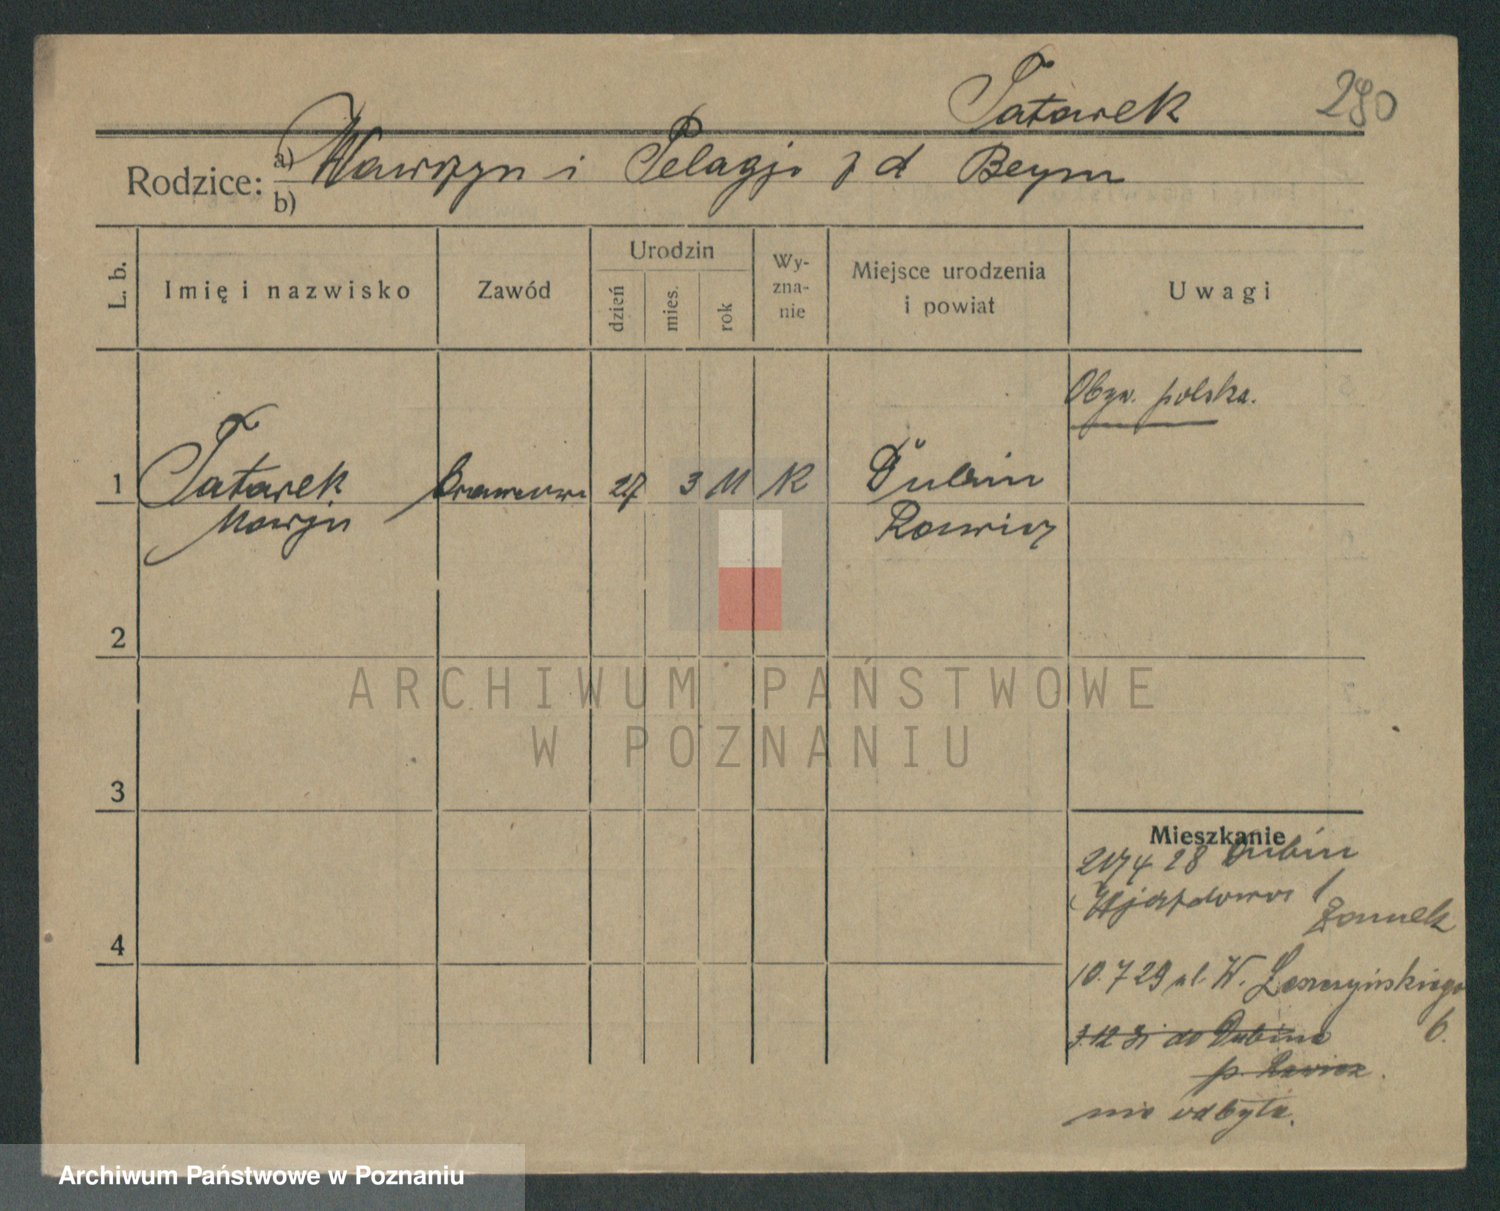 Tatarek 280
Rodzice: a) Wawrzyn i Pelagja z d Beym
b)
L. b. Imię i nazwisko Zawód Urodzin dzień mies. rok Wy-zna-nie Miejsce urodzenia i powiat Uwagi
Obyw. polska.
1 Tatarek 27 3 11 K Dubin
Marja Rawicz
2
3
4
Mieszkanie
4 28 Dubin
1
Zamek
10.7 29 ul. W. Leszczyńskiego
6.
3.12 31 do Dubina
p. Rawicz.
nie odbyła.
ARCHIWUM PAŃSTWOWE
W POZNANIU
Archiwum Państwowe w Poznaniu